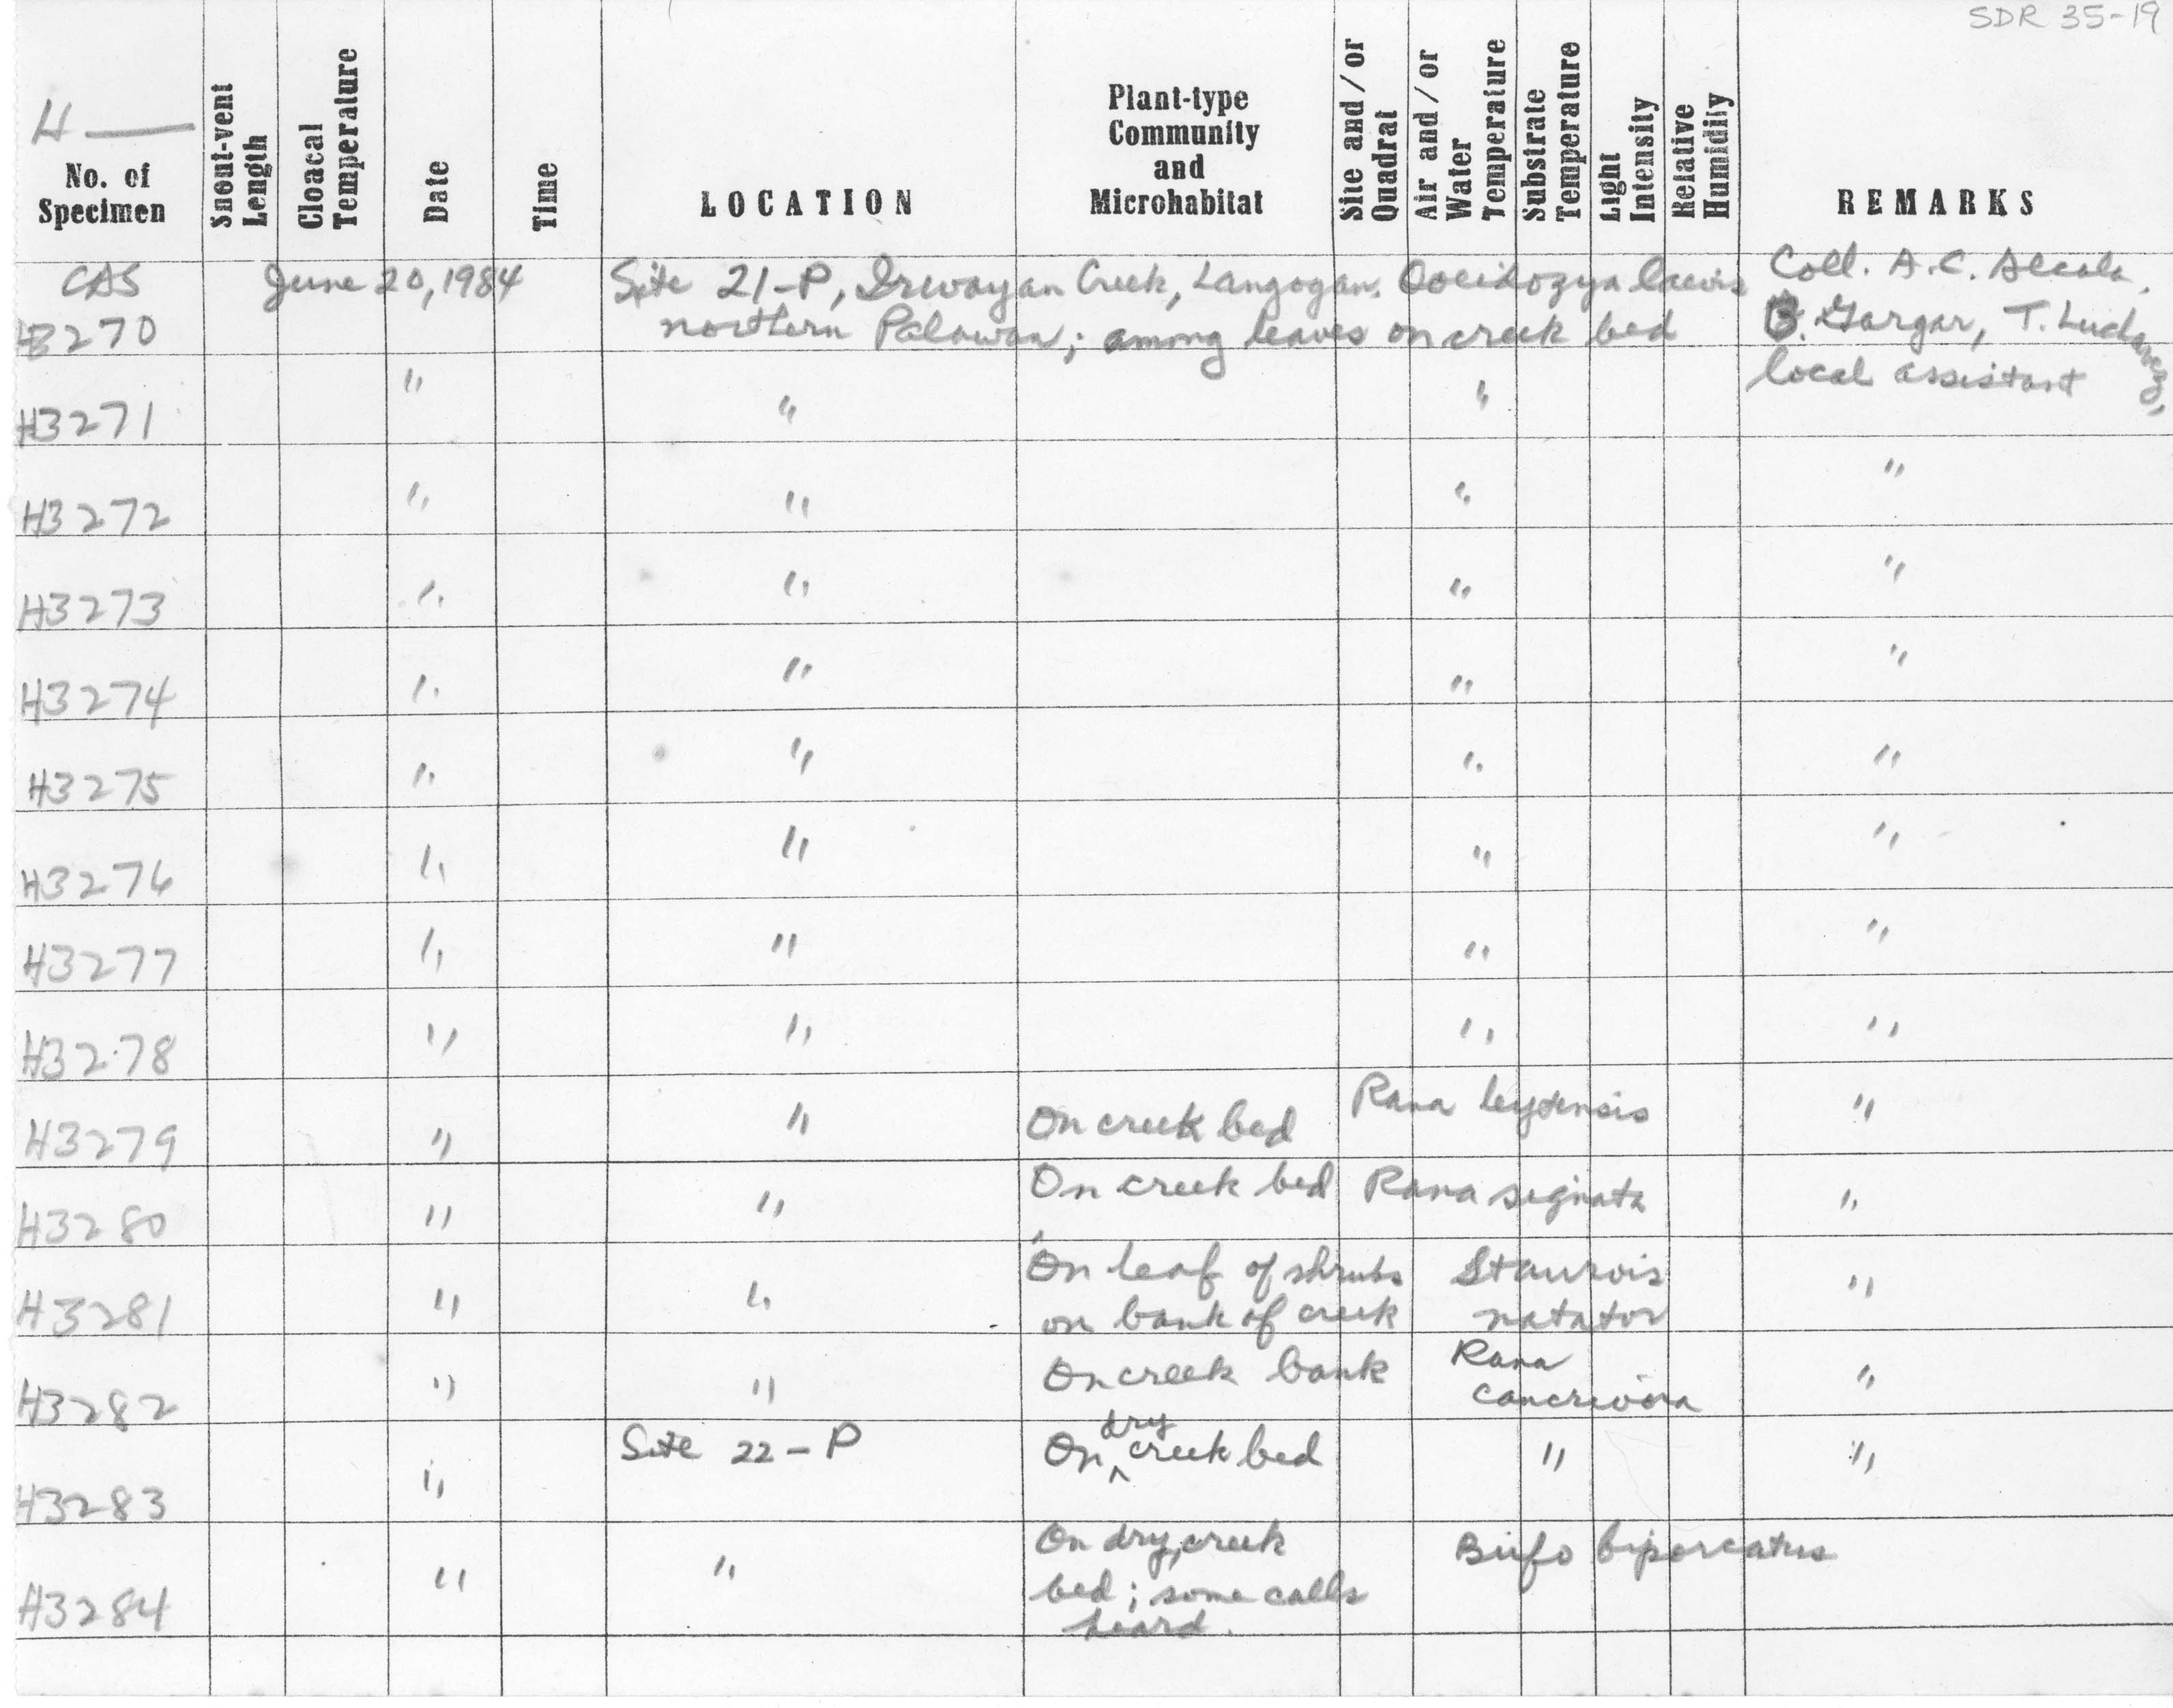 SDR 35-19
H —
No. of Specimen
Snout-vent Length
Cloacal Temperature
Date
Time
LOCATION
Plant-type Community and Microhabitat
Site and/or Quadrat
Air and/or Water Temperature
Substrate Temperature
Light Intensity
Relative Humidity
REMARKS
CAS June 20, 1984 Site 21-P, Creek, Langogan, Ooeidozyga laevis Coll. A.C. Alcala,
H3270 northern Palawan; among leaves on creek bed B. Gargar, T.
local assistant
H3271 " " "
H3272 " " " "
H3273 " " " "
H3274 " " " "
H3275 " " " "
H3276 " " " "
H3277 " " " "
H3278 " " " "
H3279 " " On creek bed Rana leytensis "
H3280 " " On creek bed Rana signata "
H3281 " " On leaf of shrubs Staurois "
on bank of creek natator
H3282 " " On creek bank Rana "
cancrivora
H3283 " Site 22-P On dry creek bed " "
H3284 " " On dry creek Bufo biporcatus
bed; some calls
heard.